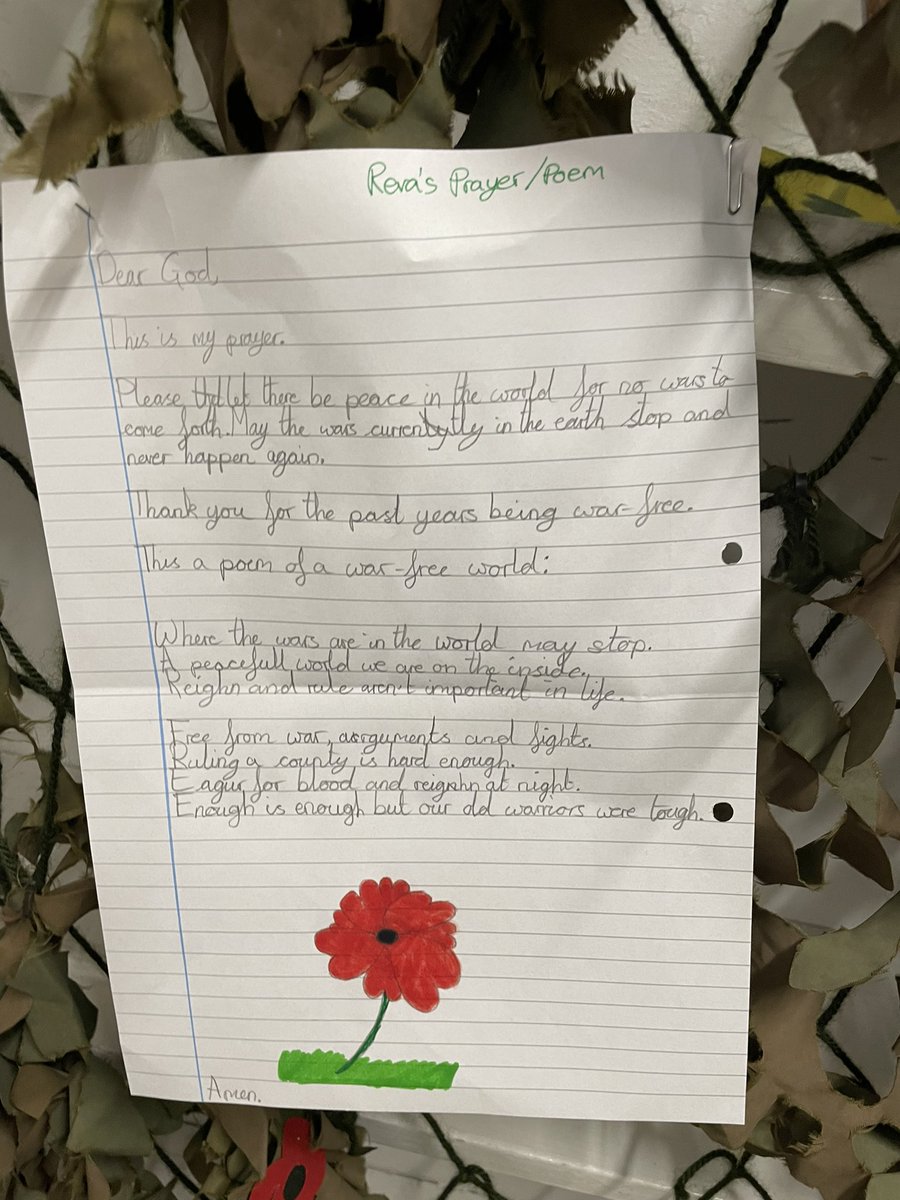 Reva's Prayer/Poem
Dear God,
This is my prayer.
Please let there be peace in the world for no wars to
come forth. May the wars currentytly in the earth stop and
never happen again.
Thank you for the past years being war-free.
This a poem of a war-free world:
Where the wars are in the world may stop.
A peacefull world we are on the inside.
Reighn and rule aren't important in life.
Free from war, asrguments and fights.
Ruling a county is hard enough.
Eagur for blood and reignhn at night.
Enough is enough but our old warriors were tough.
Amen.